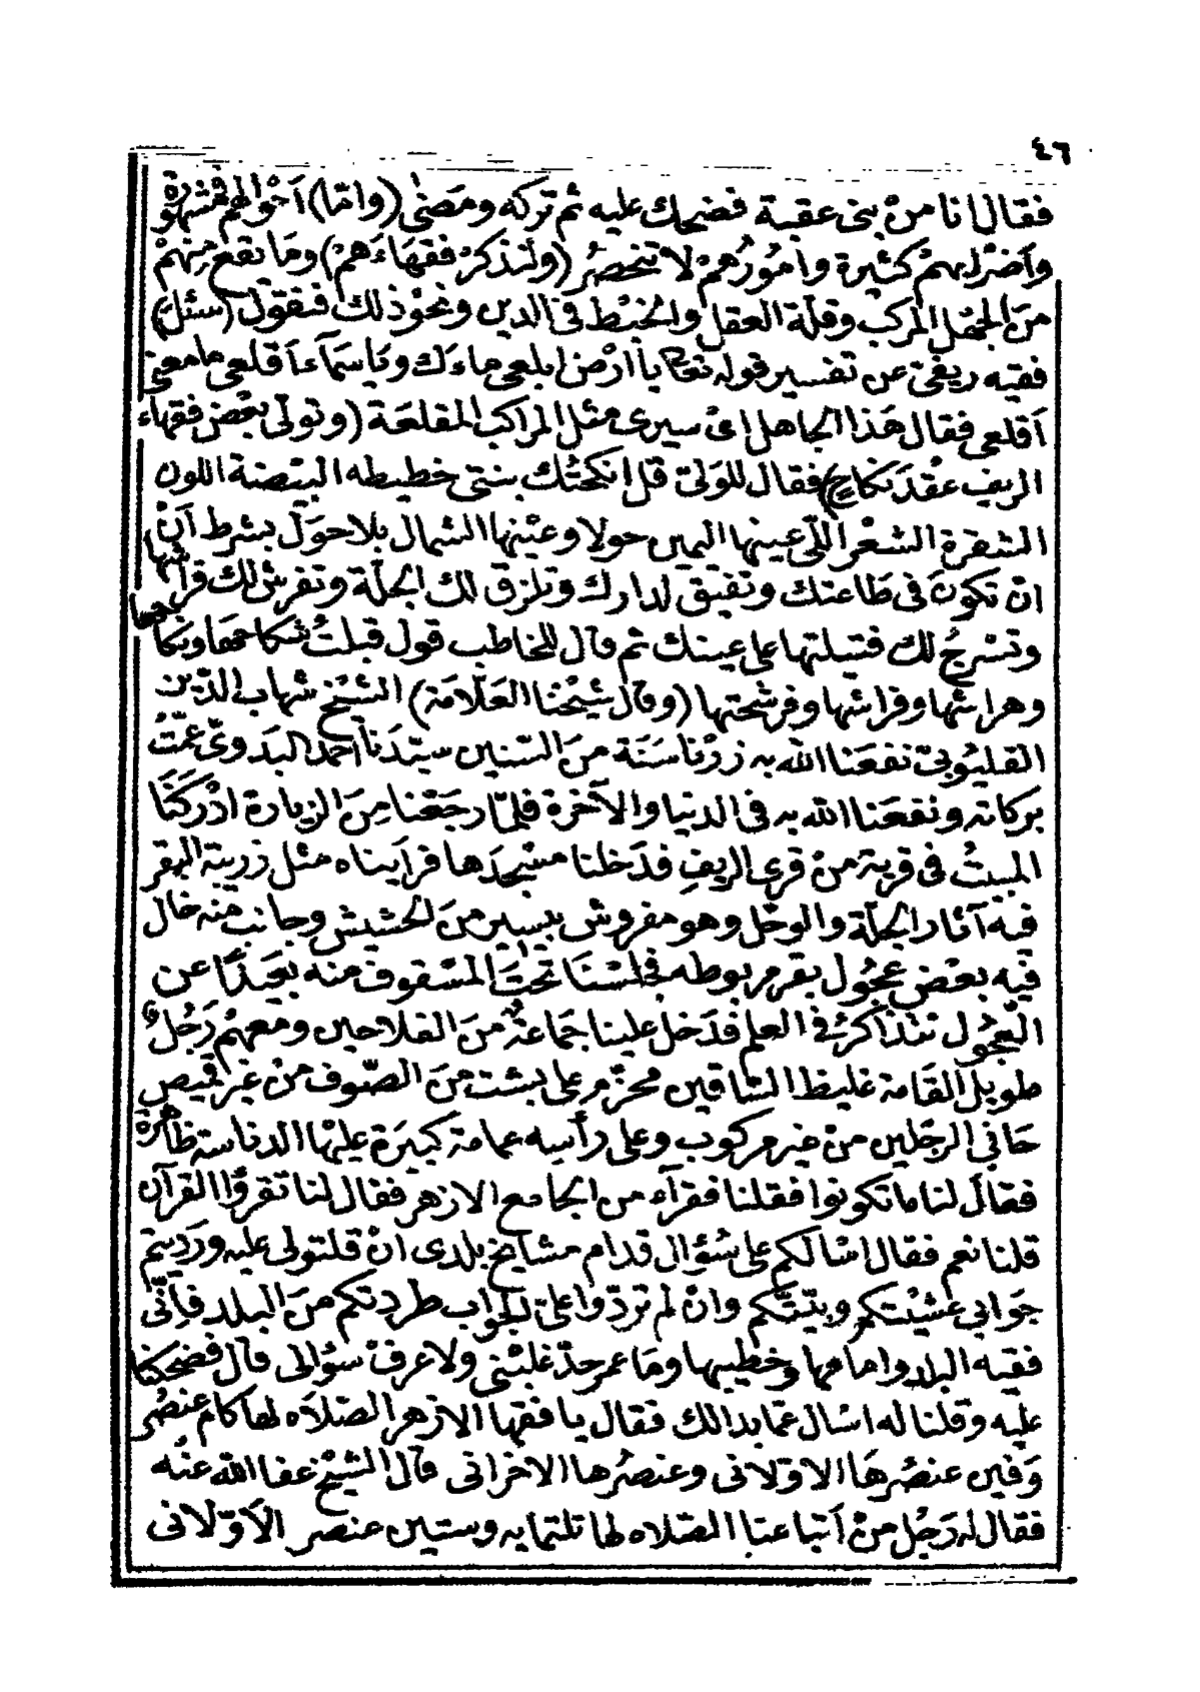 ٤٦
فقال انا من بنى عقبة فضحك عليه ثم تركه ومضى (واما) أحوالهم فمشهورة
وأضرابهم كثيرة وأمورهم لا تنحصر (ولنذكر فقهاءهم) وما تقع منهم
من الجهل المركب وقلة العقل والخبط فى الدين ونحو ذلك فنقول (سئل)
فقيه ريفى عن تفسير قوله تعالى يا أرض ابلعى ماءك ويا سماء أقلعى ما معنى
أقلعى فقال هذا الجاهل اى سيرى مثل المراكب المقلعة (وتولى بعض فقهاء
الريف عقد نكاح) فقال للولى قل انكحتك بنتى خطيطه البيضة اللون
الشقرة الشعر اللى عينها اليمين حولا وعينها الشمال بلا حول بشرط أن
ان تكون فى طاعتك وتفيق لدارك وتلزق لك الجلة وتفرش لك فراشها
وتسرج لك فتيلتها على عينك ثم قال للخاطب قول قبلت نكاحها ونكاحها
وهراشها وفراشها وفرشحتها (وقال شيخنا العلامة) الشيخ شهاب الدين
القليوبى نفعنا الله به زرنا سنة من السنين سيدنا أحمد البدوى عمت
بركاته ونفعنا الله به فى الدنيا والآخرة فلما رجعنا من الزيارة ادركنا
المبيت فى قرية من قرى الريف فدخلنا مسجدها فرأيناه مثل زريبة البقر
فيه آثار الجلة والوحل وهو مفروش بيسير من الحشيش وجانب منه خال
فيه بعض عجول بقر مربوطه فجلسنا تحت المسقوف منه بعيدا عن
العجول نتذاكر فى العلم فدخل علينا جماعة من الفلاحين ومعهم رجل
طويل القامة غليظ الساقين محزم على بشت من الصوف من غير قميص
حافى الرجلين من غير مركوب وعلى رأسه عمامة كبيرة عليها الدناسة ظاهرة
فقال لنا ما تكونوا فقلنا فقراء من الجامع الازهر فقال لنا تقروا القرآن
قلنا نعم فقال اسألكم على سؤال قدام مشايخ بلدى ان قلتولى عليه ورديتم
جوابى عشيتكم وبيتكم وان لم تردوا على الجواب طردتكم من البلد فانى
فقيه البلد وامامها وخطيبها وما عمر حد غلبنى ولا عرف سؤالى قال فضحكنا
عليه وقلنا له اسال عما بدالك فقال يا فقها الازهر الصلاه لها كام عنصر
وفين عنصرها الاولانى وعنصرها الاخرانى قال الشيخ عفا الله عنه
فقال له رجل من أتباعنا الصلاه لها تلتمايه وستين عنصر الأولانى